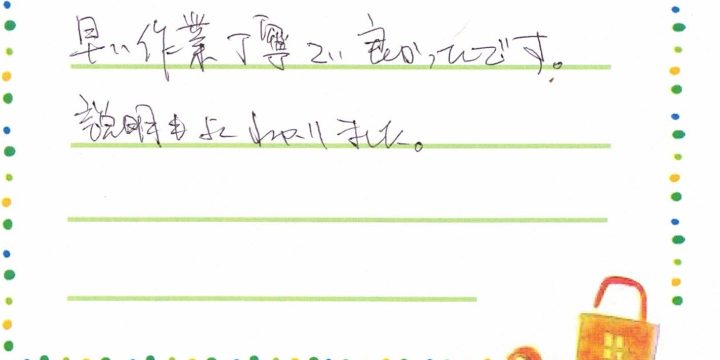 早い作業丁寧でい良かったです。
説明もよくわかりました。